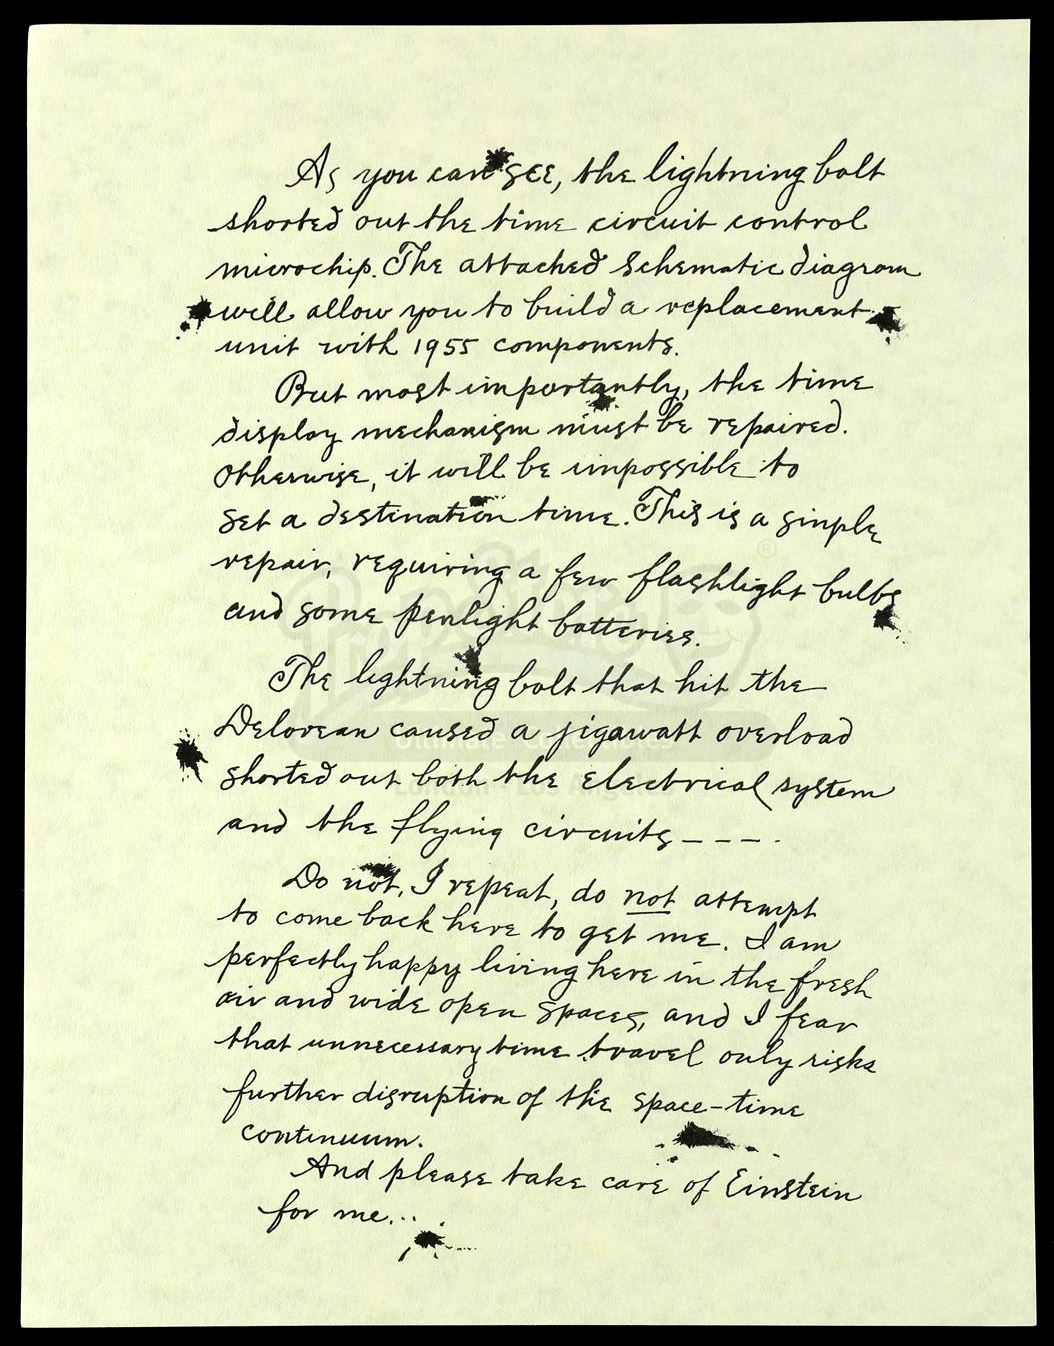 As you can see, the lightning bolt
shorted out the time circuit control
microchip. The attached schematic diagram
will allow you to build a replacement
unit with 1955 components.
But most importantly, the time
display mechanism must be repaired.
Otherwise, it will be impossible to
set a destination time. This is a simple
repair, requiring a few flashlight bulbs
and some penlight batteries.
The lightning bolt that hit the
Delorean caused a jigawatt overload
shorted out both the electrical system
and the flying circuits----.
Do not, I repeat, do not attempt
to come back here to get me. I am
perfectly happy living here in the fresh
air and wide open spaces, and I fear
that unnecessary time travel only risks
further disruption of the space-time
continuum.
And please take care of Einstein
for me...